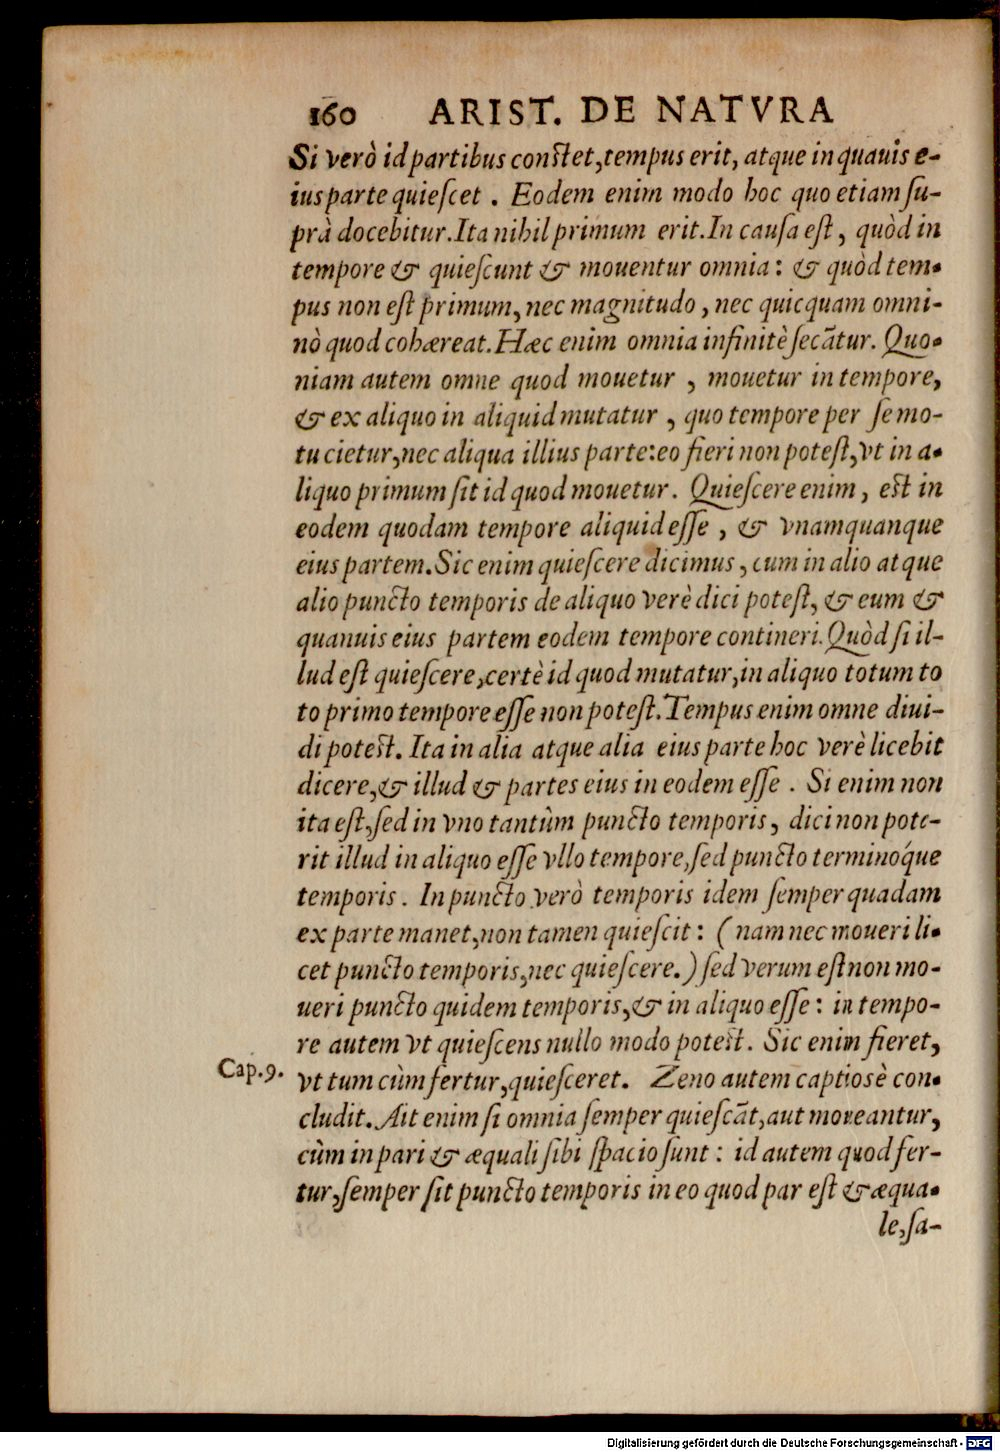 160 ARIST. DE NATVRA
Si verò id partibus conſtet, tempus erit, atque in quauis e-
ius parte quieſcet . Eodem enim modo hoc quo etiam ſu-
prà docebitur. Ita nihil primum erit. In cauſa eſt, quòd in
tempore & quieſcunt & mouentur omnia: & quòd tem-
pus non eſt primum, nec magnitudo, nec quicquam omni-
nò quod cohæreat. Hæc enim omnia infinitè ſecãtur. Quo-
niam autem omne quod mouetur , mouetur in tempore,
& ex aliquo in aliquid mutatur , quo tempore per ſe mo-
tu cietur, nec aliqua illius parte: eo fieri non poteſt, vt in a-
liquo primum ſit id quod mouetur. Quieſcere enim, eſt in
eodem quodam tempore aliquid eſſe , & vnamquanque
eius partem. Sic enim quieſcere dicimus, cum in alio atque
alio puncto temporis de aliquo verè dici poteſt, & eum &
quanuis eius partem eodem tempore contineri. Quòd ſi il-
lud eſt quieſcere, certè id quod mutatur, in aliquo totum to
to primo tempore eſſe non poteſt. Tempus enim omne diui-
di poteſt. Ita in alia atque alia eius parte hoc verè licebit
dicere, & illud & partes eius in eodem eſſe . Si enim non
ita eſt, ſed in vno tantùm puncto temporis, dici non pote-
rit illud in aliquo eſſe vllo tempore, ſed puncto terminóque
temporis . In puncto verò temporis idem ſemper quadam
ex parte manet, non tamen quieſcit: ( nam nec moueri li-
cet puncto temporis, nec quieſcere.) ſed verum eſt non mo-
ueri puncto quidem temporis, & in aliquo eſſe: in tempo-
re autem vt quieſcens nullo modo poteſt. Sic enim fieret,
Cap.9. vt tum cùm fertur, quieſceret. Zeno autem captiosè con-
cludit. Ait enim ſi omnia ſemper quieſcãt, aut moueantur,
cùm in pari & æquali ſibi ſpacio ſunt: id autem quod fer-
tur, ſemper ſit puncto temporis in eo quod par eſt & æqua-
le, ſa-
Digitalisierung gefördert durch die Deutsche Forschungsgemeinschaft - DFG